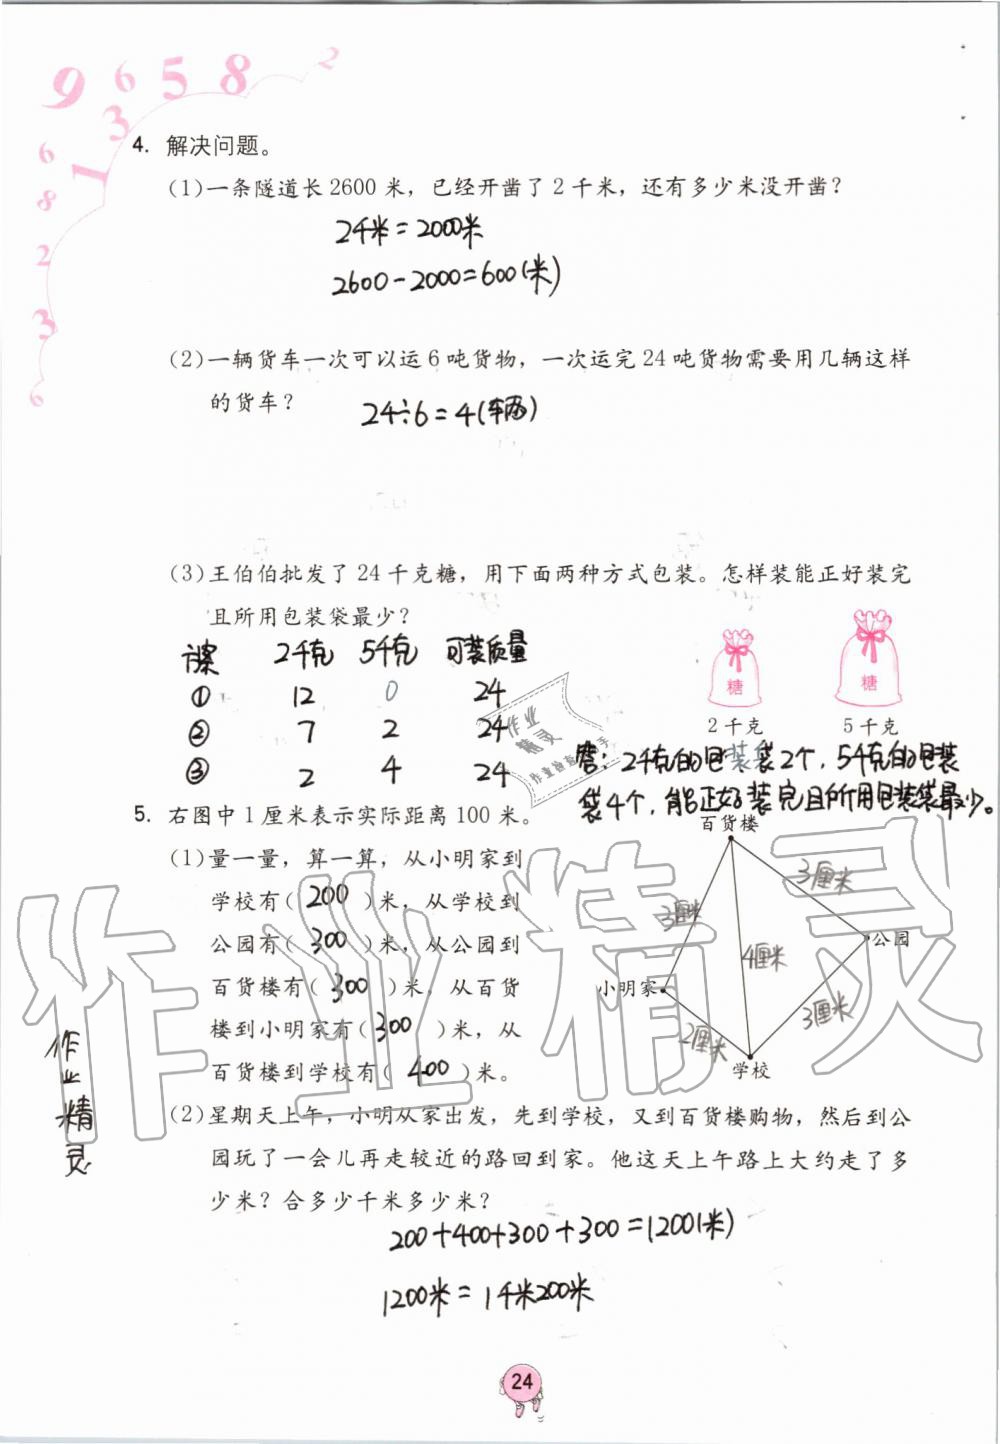 9 6 5 8 2
3
1
6
8
2
3
6
4. 解决问题。
(1)一条隧道长2600米，已经开凿了2千米，还有多少米没开凿？
2千米=2000米
2600-2000=600(米)
(2)一辆货车一次可以运6吨货物，一次运完24吨货物需要用几辆这样
的货车？
24÷6=4(辆)
(3)王伯伯批发了24千克糖，用下面两种方式包装。怎样装能正好装完
且所用包装袋最少？
方案 2千克 5千克 可装质量
① 12 0 24
② 7 2 24
③ 2 4 24
糖 糖
2千克 5千克
答：2千克的包装袋2个，5千克的包装
袋4个，能正好装完且所用包装袋最少。
作业
精灵
5. 右图中1厘米表示实际距离100米。
(1)量一量，算一算，从小明家到
学校有(200)米，从学校到
公园有(300)米，从公园到
百货楼有(300)米，从百货
楼到小明家有(300)米，从
百货楼到学校有(400)米。
百货楼
3厘米
3厘米
公园
4厘米
小明家
3厘米
2厘米
学校
作业精灵
作业精灵
(2)星期天上午，小明从家出发，先到学校，又到百货楼购物，然后到公
园玩了一会儿再走较近的路回到家。他这天上午路上大约走了多
少米？合多少千米多少米？
200+400+300+300=1200(米)
1200米=1千米200米
24